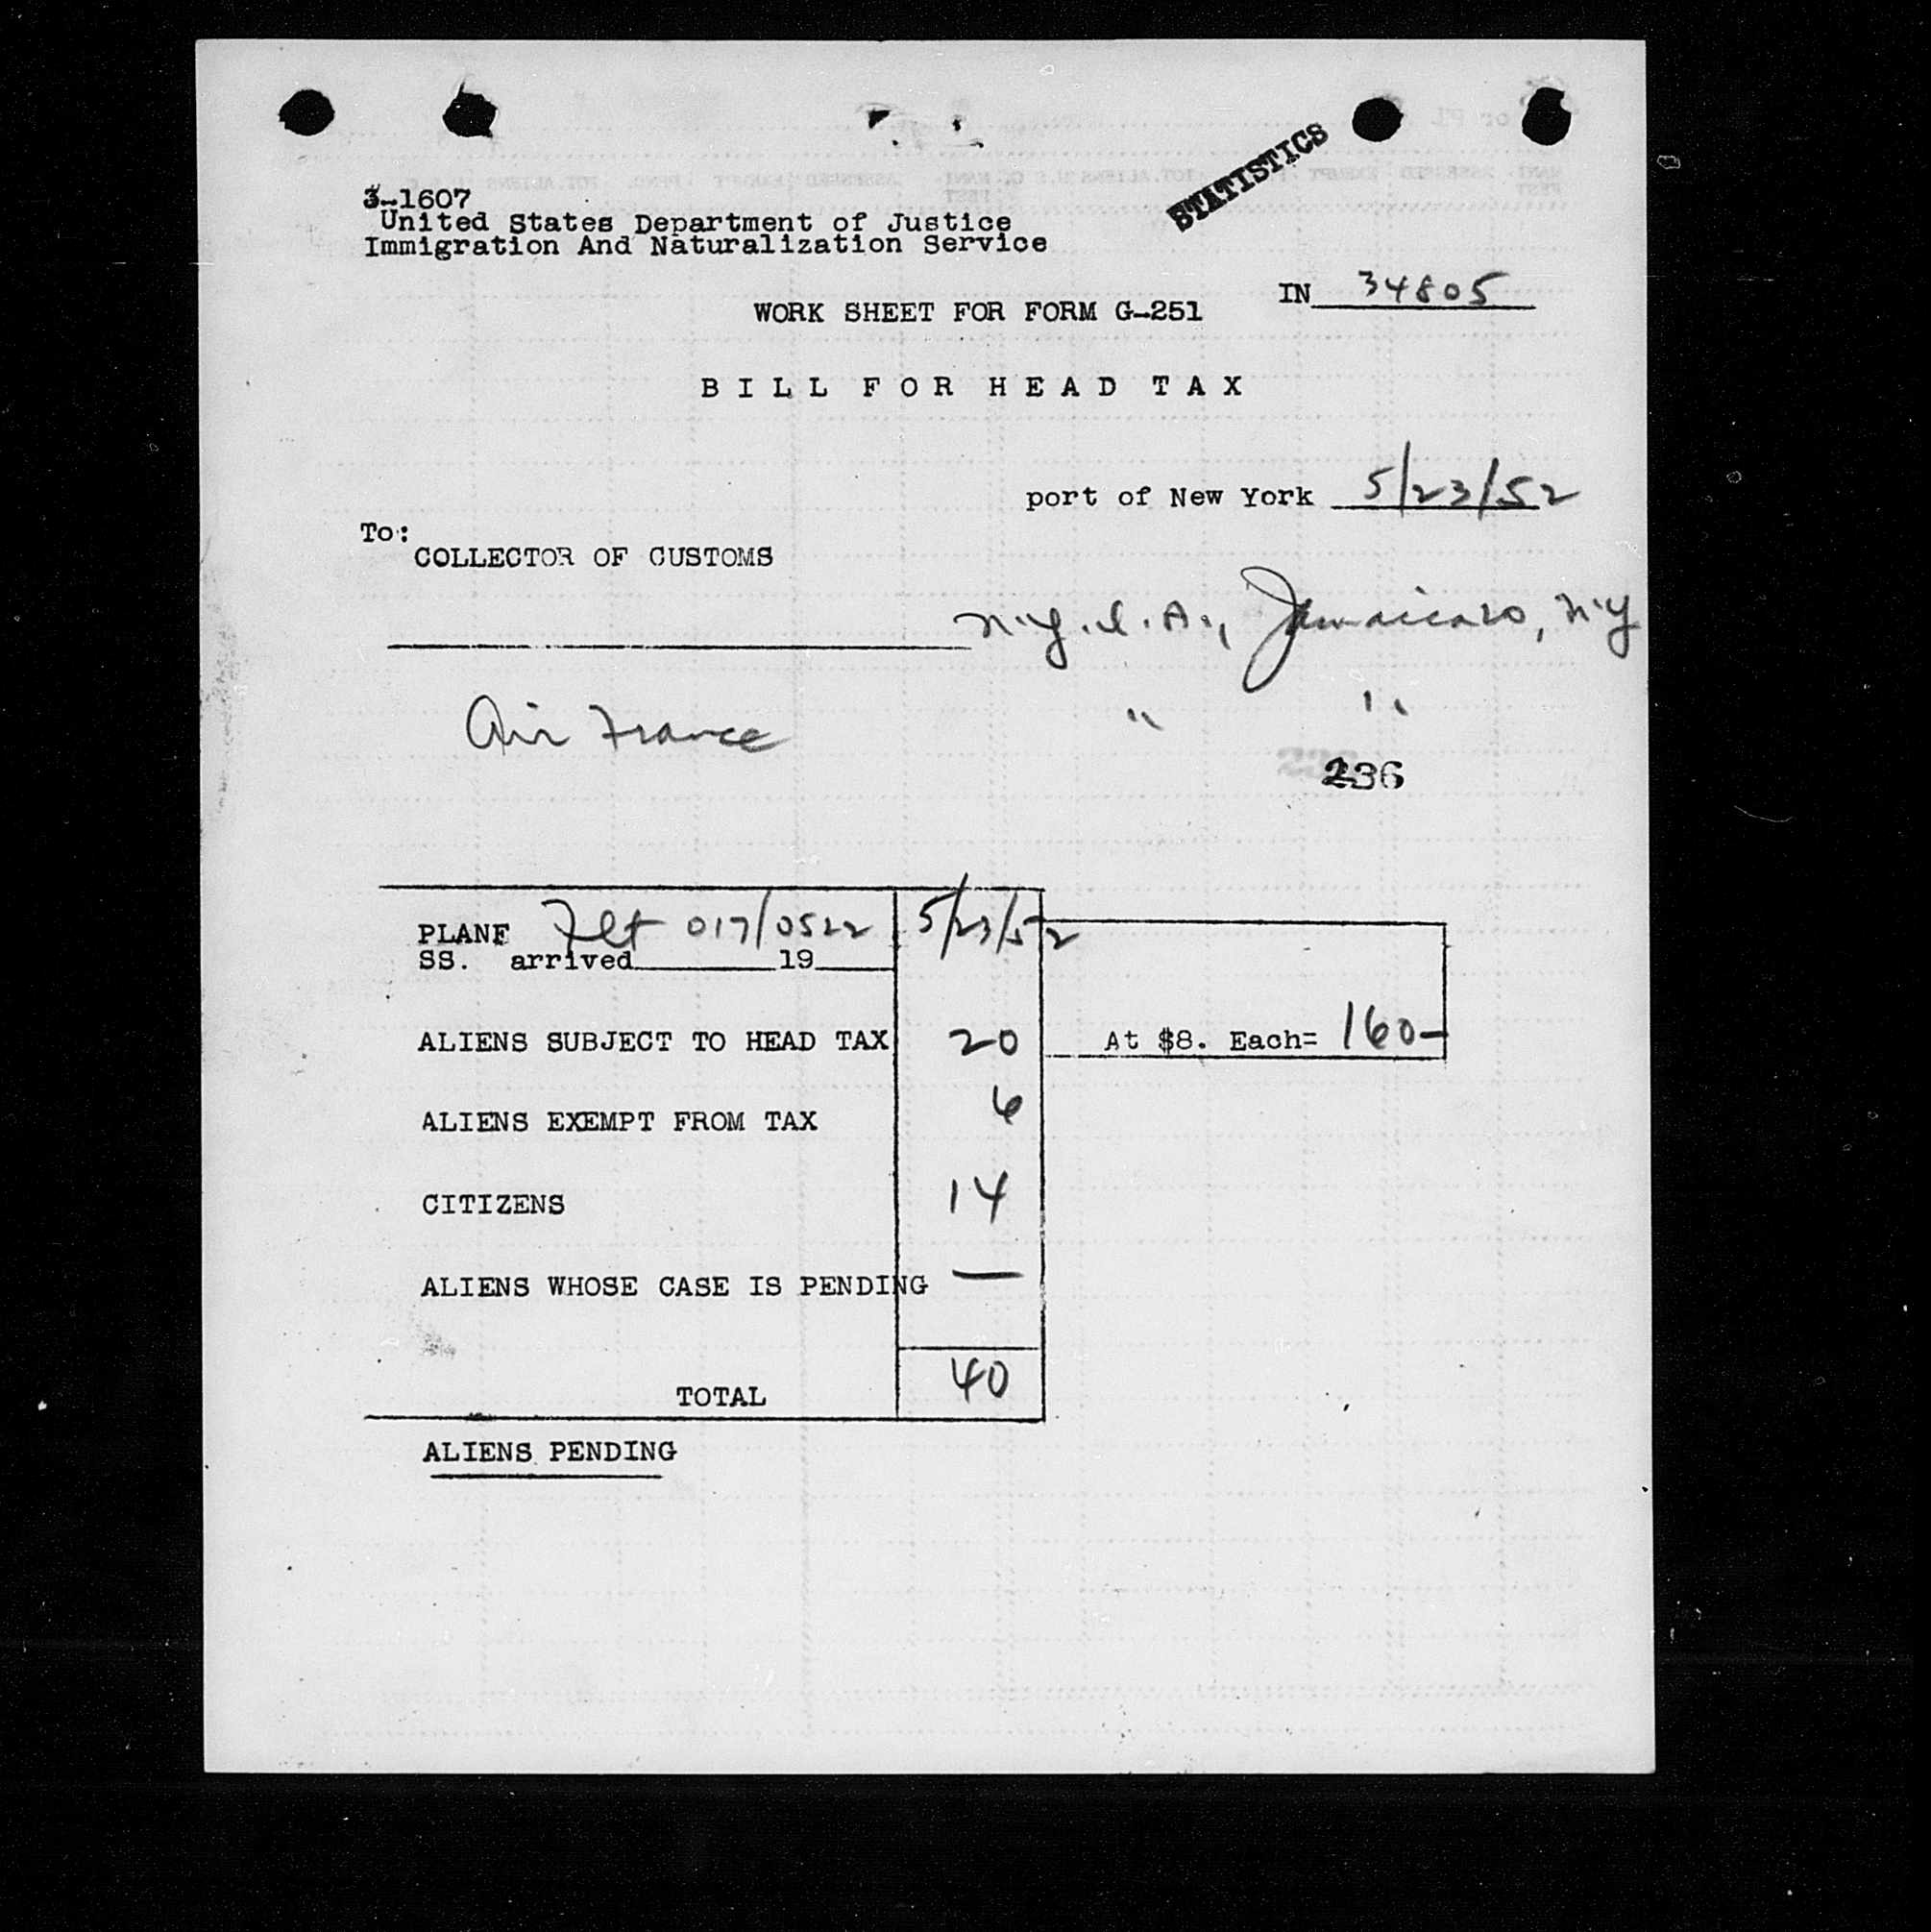 STATISTICS
3-1607
United States Department of Justice
Immigration And Naturalization Service
IN 34805
WORK SHEET FOR FORM G-251
BILL FOR HEAD TAX
port of New York 5/23/52
To:
COLLECTOR OF CUSTOMS
N.Y.I.A., Jamaica 20, N.Y
Air France " "
236
PLANE Flt 017/0522 5/23/52
SS. arrived 19
ALIENS SUBJECT TO HEAD TAX 20 At $8. Each= 160-
ALIENS EXEMPT FROM TAX 6
CITIZENS 14
ALIENS WHOSE CASE IS PENDING —
TOTAL 40
ALIENS PENDING